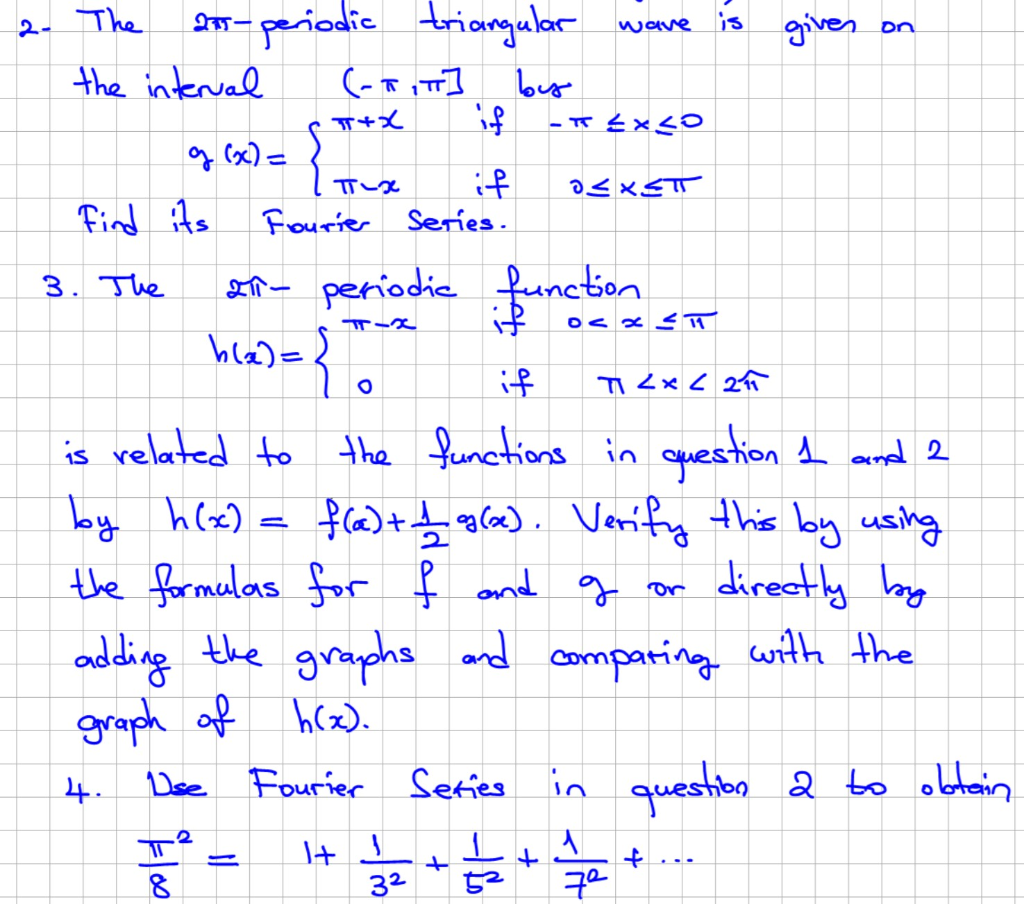 2- The 2π-periodic triangular wave is given on
the interval (-π,π] by
g(x) = { π+x if -π ≤ x ≤ 0
π-x if 0 ≤ x ≤ π
Find its Fourier Series.
3. The 2π- periodic function
h(x) = { π-x if 0 < x ≤ π
0 if π < x < 2π
is related to the functions in question 1 and 2
by h(x) = f(x) + 1/2 g(x). Verify this by using
the formulas for f and g or directly by
adding the graphs and comparing with the
graph of h(x).
4. Use Fourier Series in question 2 to obtain
π²/8 = 1 + 1/3² + 1/5² + 1/7² + ...